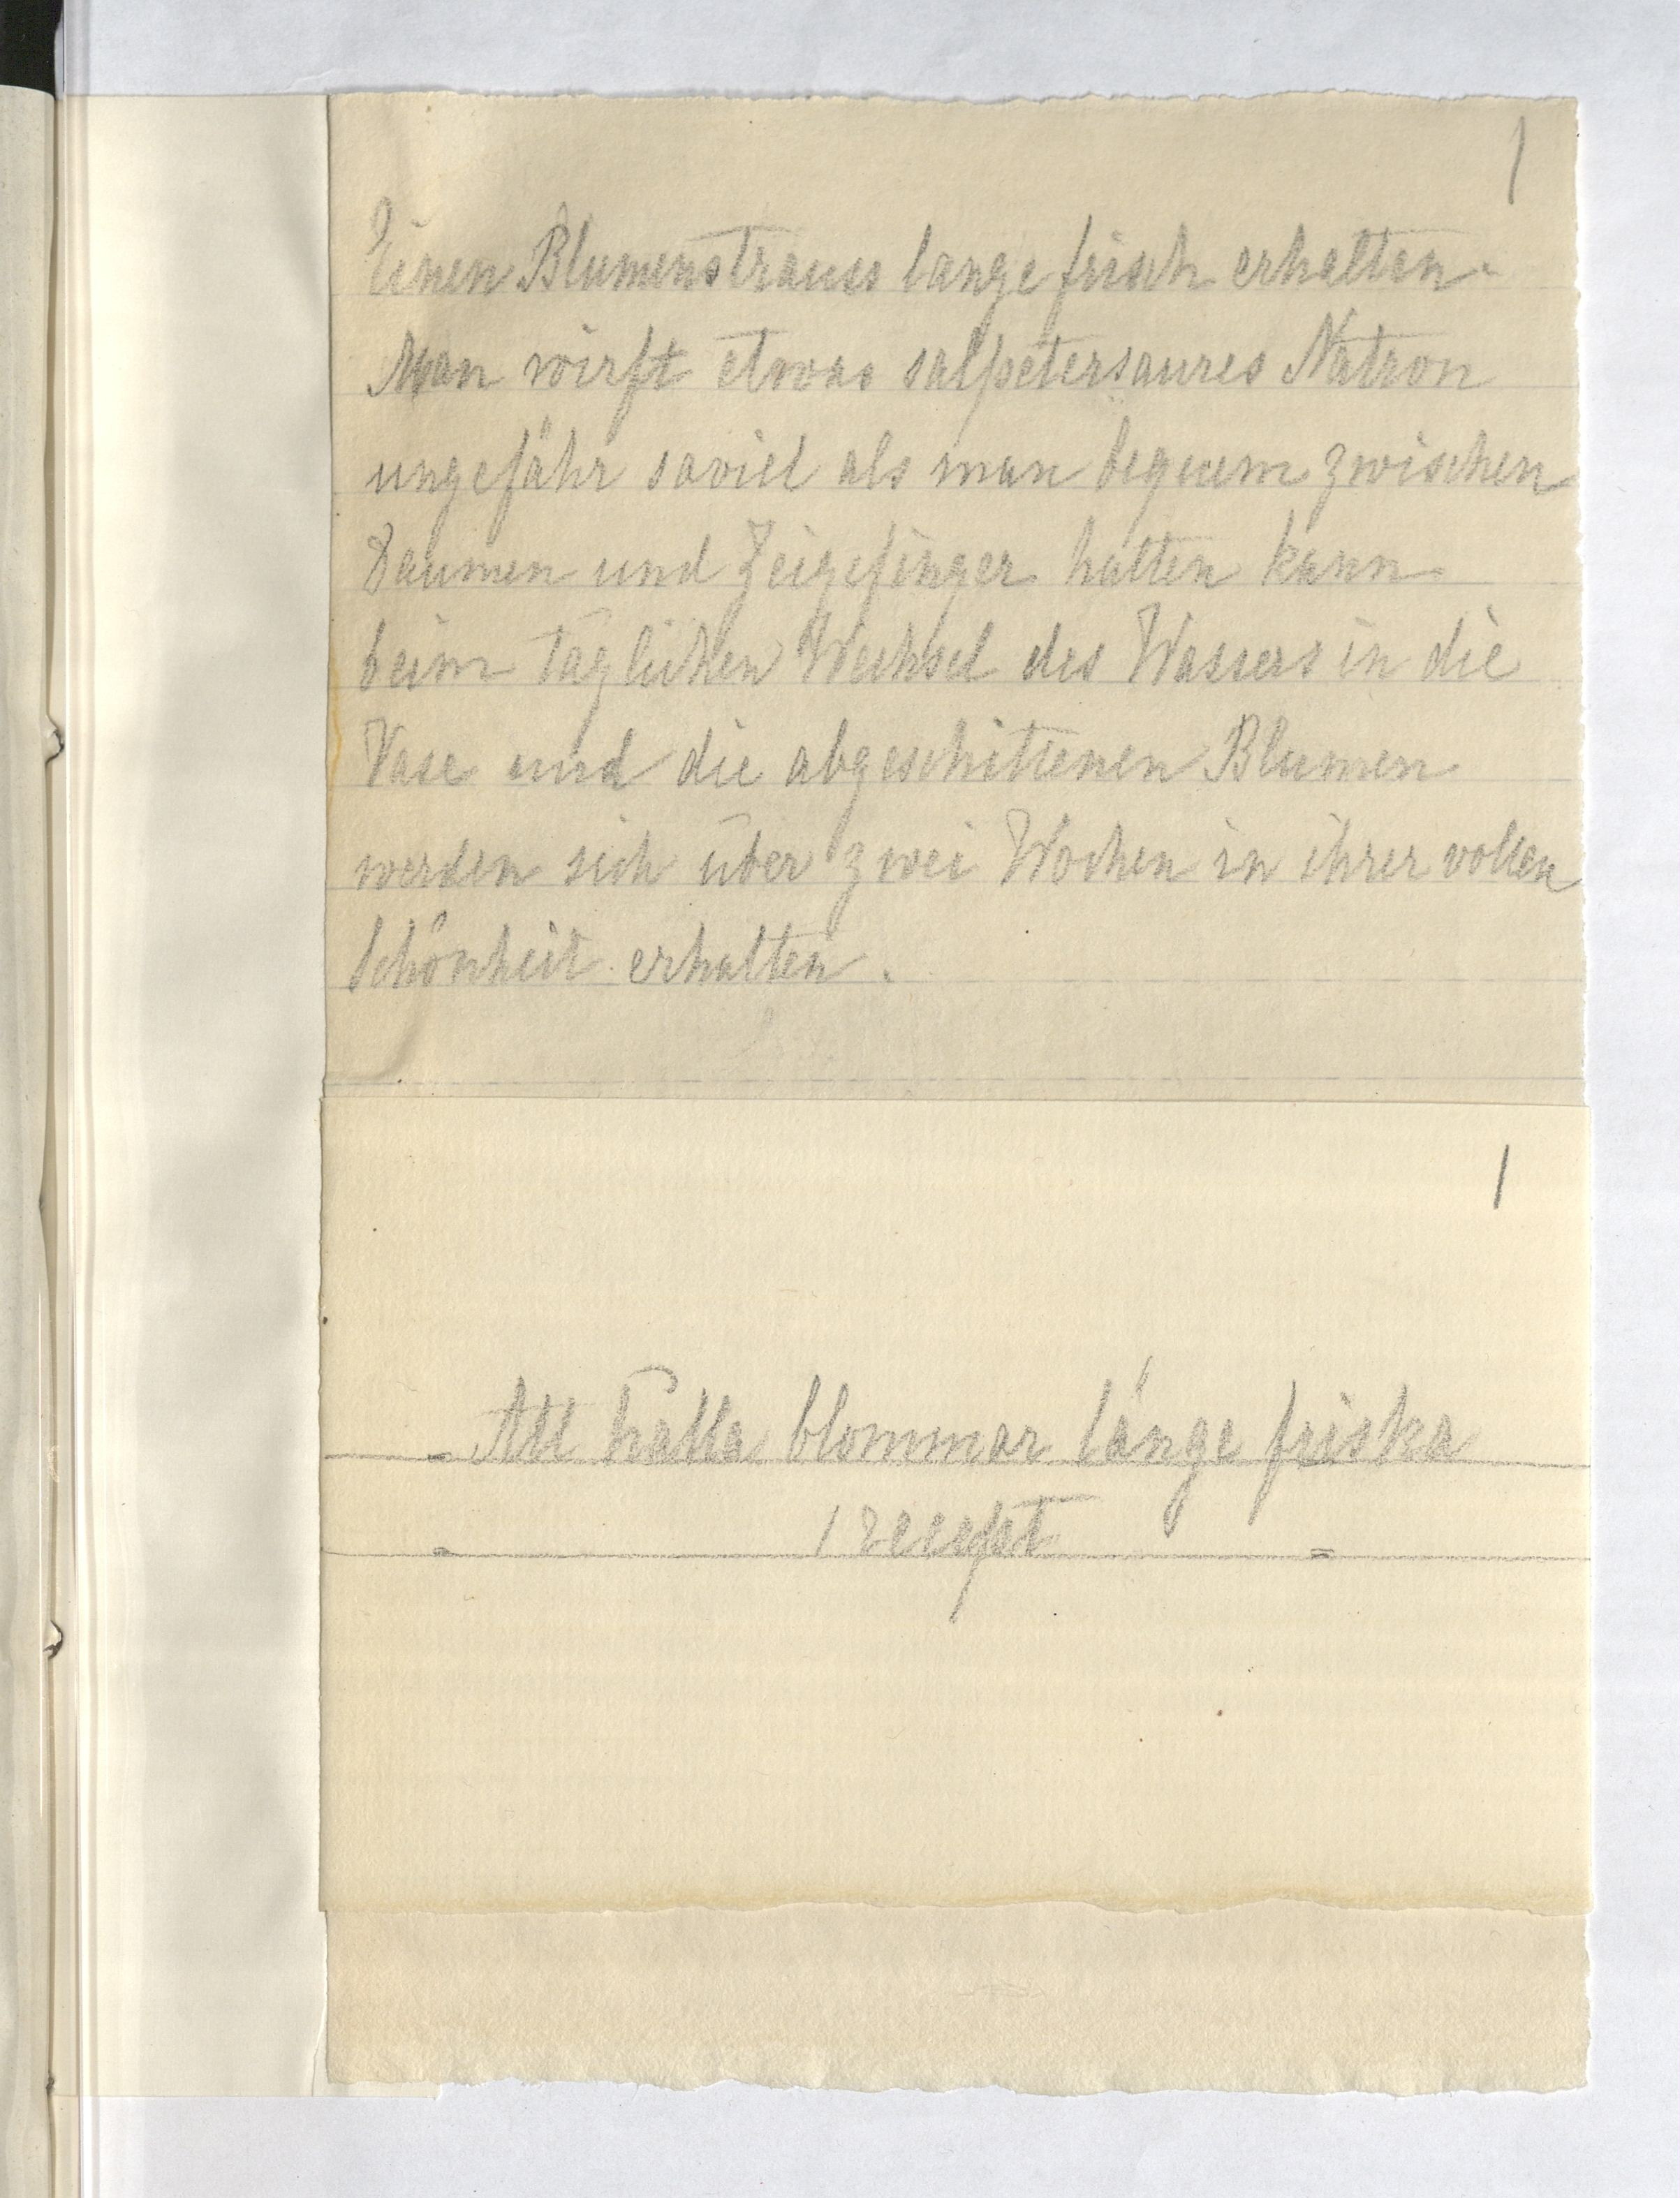 1
Einen Blumenstrauss lange frisch erhalten.
Man wirft etwas salpetersaures Natron
ungefähr soviel als man bequem zwischen
Daumen und Zeigefinger halten kann
beim täglichen Wechsel des Wassers in die
Vase und die abgeschittenen Blumen
werden sich über zwei Wochen in ihrer vollen
Schönheit erhalten.
1
Att hålla blommar länge friska
1 recept